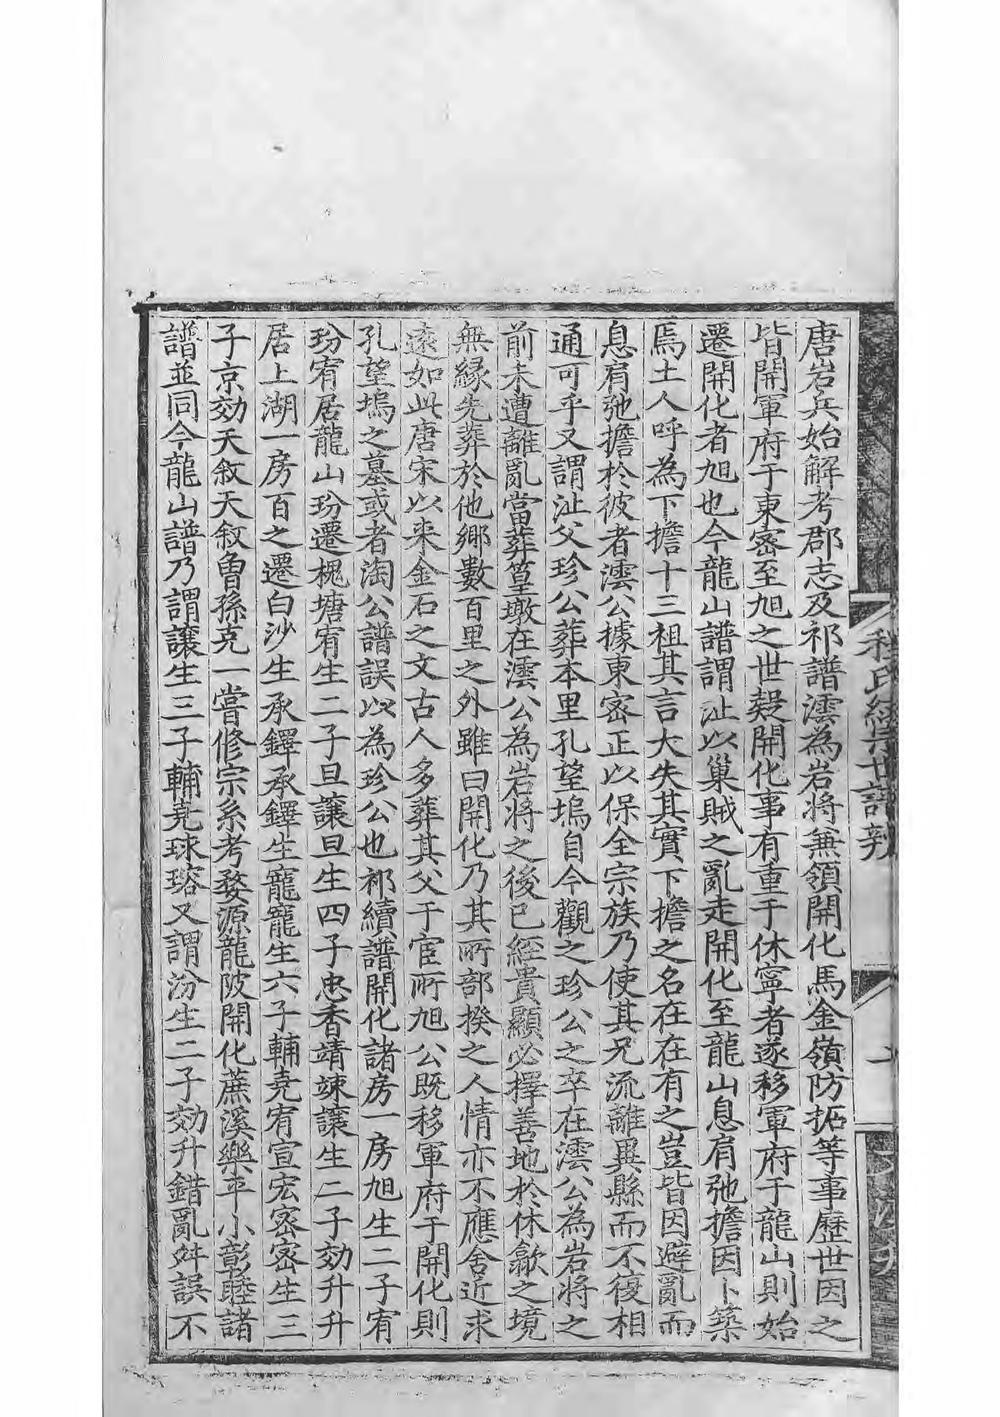 唐岩兵始解考郡志及祁譜澐為岩將兼領開化馬金嶺防拓等事歷世因之
皆開軍府于東宻至旭之世疑開化事有重于休寧者遂移軍府于龍山則始
遷開化者旭也今龍山譜謂沚以巢賊之亂走開化至龍山息肩弛擔因卜築
焉土人呼為下擔十三祖其言大失其實下擔之名在在有之豈皆因避亂而
息肩弛擔於彼者澐公據東宻正以保全宗族乃使其兄流離異縣而不復相
通可乎又謂沚父珍公葬本里孔望塢自今觀之珍公之卒在澐公為岩將之
前未遭離亂當葬篁墩在澐公為岩將之後已經貴顯必擇善地於休歙之境
無緣先葬於他鄉數百里之外雖曰開化乃其所部揆之人情亦不應舍近求
遠如此唐宋以来金石之文古人多葬其父于宦所旭公既移軍府于開化則
孔望塢之墓或者淘公譜誤以為珍公也祁續譜開化諸房一房旭生二子宥
玢宥居龍山玢遷槐塘宥生二子旦讓旦生四子忠香靖竦讓生二子効升升
居上湖一房百之遷白沙生承鐸承鐸生寵寵生六子輔堯宥宣宏宻宻生三
子京効天敘天敘曾孫克一嘗修宗系考婺源龍陂開化蔗溪樂平小彰睦諸
譜並同今龍山譜乃謂讓生三子輔堯球瑢又謂汾生二子効升錯亂舛誤不
程氏統宗世譜辨